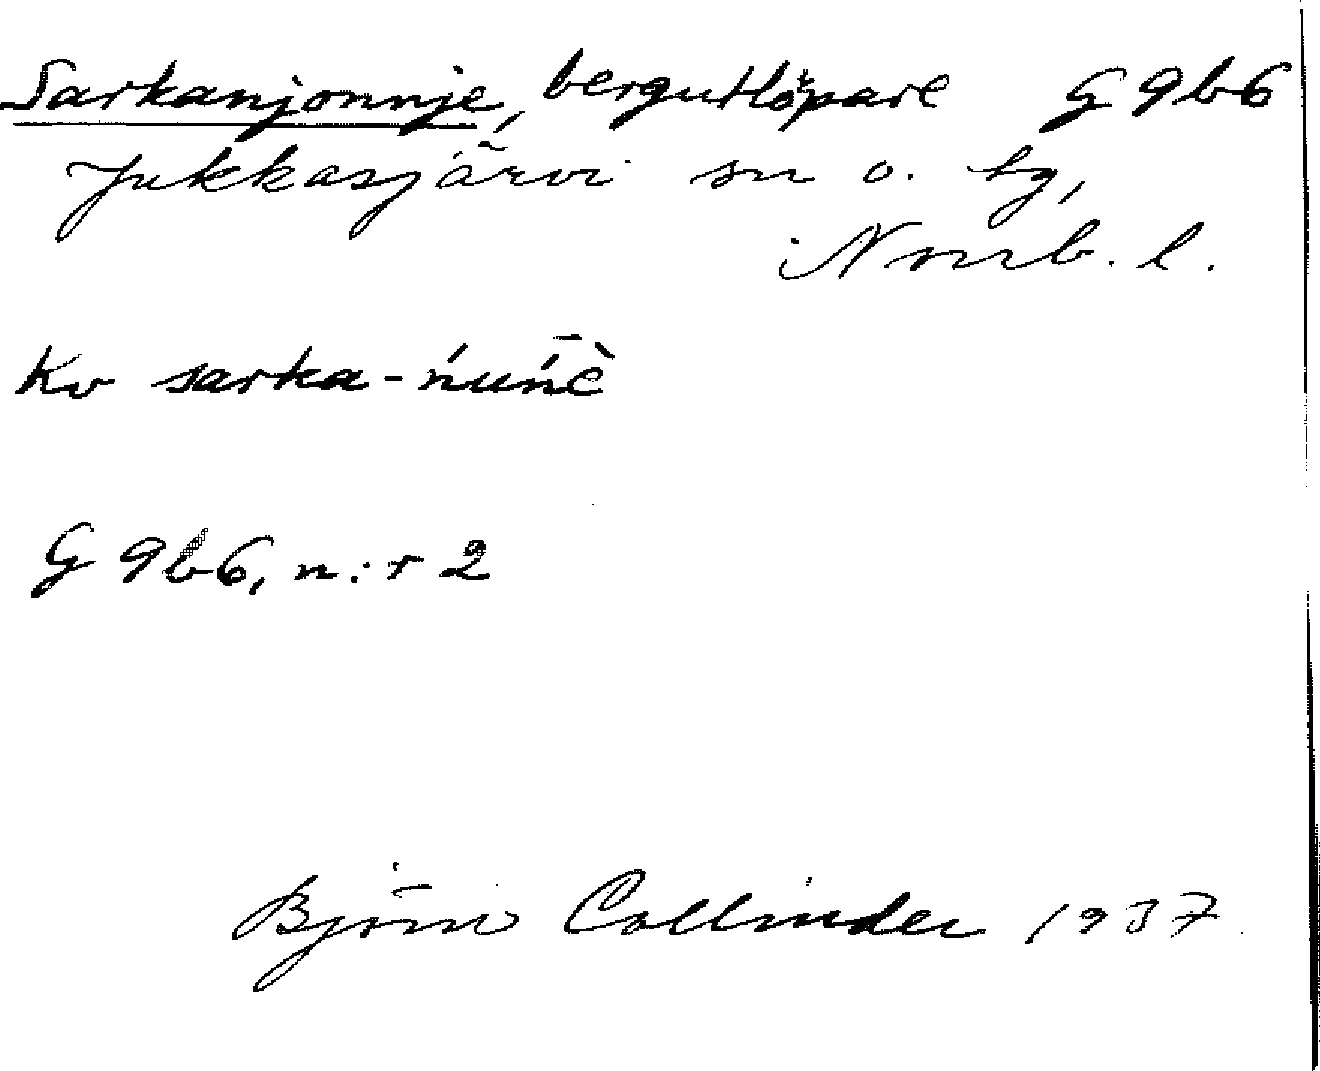 Sarkanjonnje, bergutlöpare G 9b6
Jukkasjärvi sn o. tg,
Norrb. l.
Kv sarka-ńuńc̄̀
G 9b6, n:r 2
Björn Collinder 1937.